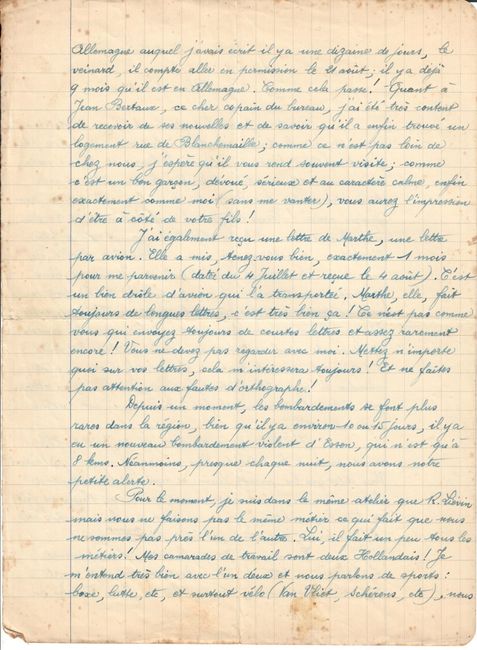 Allemagne auquel j'avais écrit il y a une dizaine de jours, le
veinard, il compte aller en permission le 21 août ; il y a déjà
9 mois qu'il est en Allemagne. Comme cela passe ! Quant à
Jean Bertaux, ce cher copain du bureau, j'ai été très content
de recevoir de ses nouvelles et de savoir qu'il a enfin trouvé un
logement rue de Blanchemaille ; comme ce n'est pas loin de
chez nous, j'espère qu'il vous rend souvent visite ; comme
c'est un bon garçon, dévoué, sérieux et au caractère calme, enfin
exactement comme moi (sans me vanter), vous aurez l'impression
d'être à côté de votre fils !
J'ai également reçu une lettre de Marthe, une lettre
par avion. Elle a mis, tenez-vous bien, exactement 1 mois
pour me parvenir (daté du 4 Juillet et reçue le 4 août). C'est
un bien drôle d'avion qui l'a transportée. Marthe, elle, fait
toujours de longues lettres, c'est très bien ça ! Ce n'est pas comme
vous qui envoyez toujours de courtes lettres et assez rarement
encore ! Vous ne devez pas regarder avec moi. Mettez n'importe
quoi sur vos lettres, cela m'intéressera toujours ! Et ne faites
pas attention aux fautes d'orthographe !
Depuis un moment, les bombardements se font plus
rares dans la région, bien qu'il y a environ 10 ou 15 jours, il y a
eu un nouveau bombardement violent d'Essen, qui n'est qu'à
8 kms. Néanmoins, presque chaque nuit, nous avons notre
petite alerte.
Pour le moment, je suis dans le même atelier que R. Liévin
mais nous ne faisons pas le même métier ce qui fait que nous
ne sommes pas près l'un de l'autre. Lui, il fait un peu tous les
métiers ! Mes camarades de travail sont deux Hollandais ! Je
m'entend très bien avec l'un deux et nous parlons de sports :
boxe, lutte, etc, et surtout vélo (Van Vliet, Schérens, etc), nous